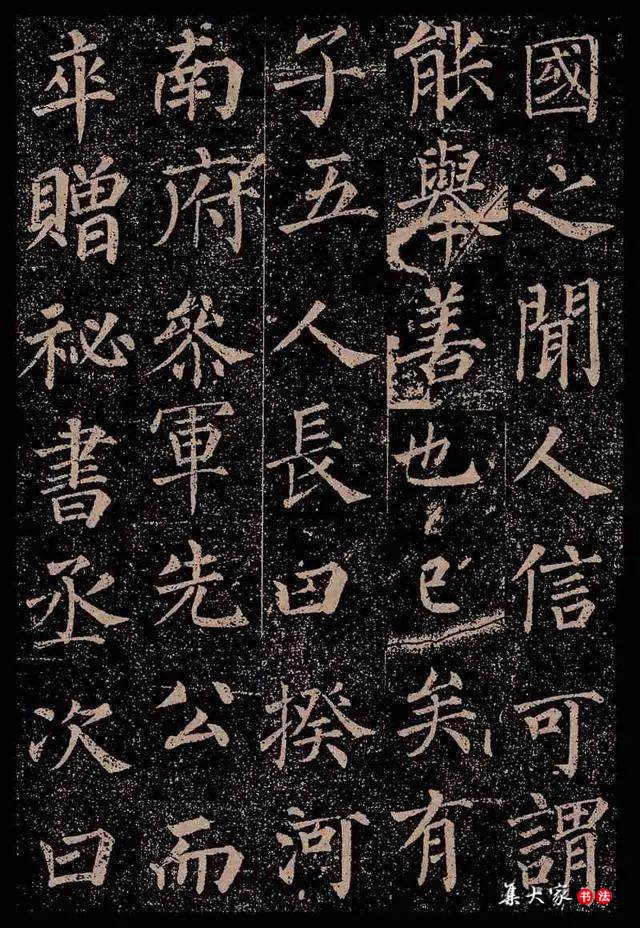 國之聞人信可謂
能舉善也已矣有
子五人長曰揆河
南府叅軍先公而
卒贈祕書丞次曰
集大家书法